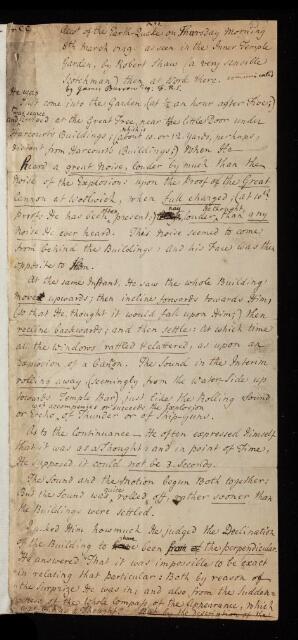 Acct of the Earth-Quake on Thursday Morning
8th March 1749. as seen in the Inner Temple
Garden, by Robert Shaw (a very sensible
Scotchman) then at Work there. communicated
by James Burrow Esq. F.R.S.
He was
just come into the Garden (at ½ an hour after Five;)
and at the Great Tree, near the little Door under
Harcourts Buildings; (which is about 10. or 12 Yards, perhaps,
distant from Harcourts Buildings;) When He
Heard a great Noise, louder by much than the
Noise of the Explosion upon the Proof of the Great
Cannon at Woolwich, when full charged; (at which
Proofs He has been often present;) nay louder, He thought, than any
Noise He ever heard. This Noise seemed to come
from behind the Buildings; and his Face was then
opposite to them.
At the same Instant, He saw the whole Building
move upwards; then incline forwards towards Him,
(so that He thought it would fall upon Him;) then
recline backwards; and then settle: at which time
all the Windows rattled & clatered, as upon an
Explosion of a Canon. The Sound in the Interim
rolling away (seemingly from the Water-Side up
towards Temple Bar) just like the Rolling Sound
wch accompanies or succeeds the Explosion
or Echo, of Thunder or of Ship-Guns.
As to the Continuance — He often expressed Himself
that it was as a Thought: and in point of Time,
He supposed it could not be 3. Seconds.
The Sound and the Motion begun Both together:
But the Sound was rolled off, rather sooner than
the Buildings were settled.
I asked Him how much He judged the Declination
of the Building to have been from the perpendicular.
He answered "That it was impossible to be exact
in relating that particular: Both by reason of
the Surprise He was in; and also from the Sudden-
ness of the whole Compass of the Appearance, which
was as a Thought. But by the description of the